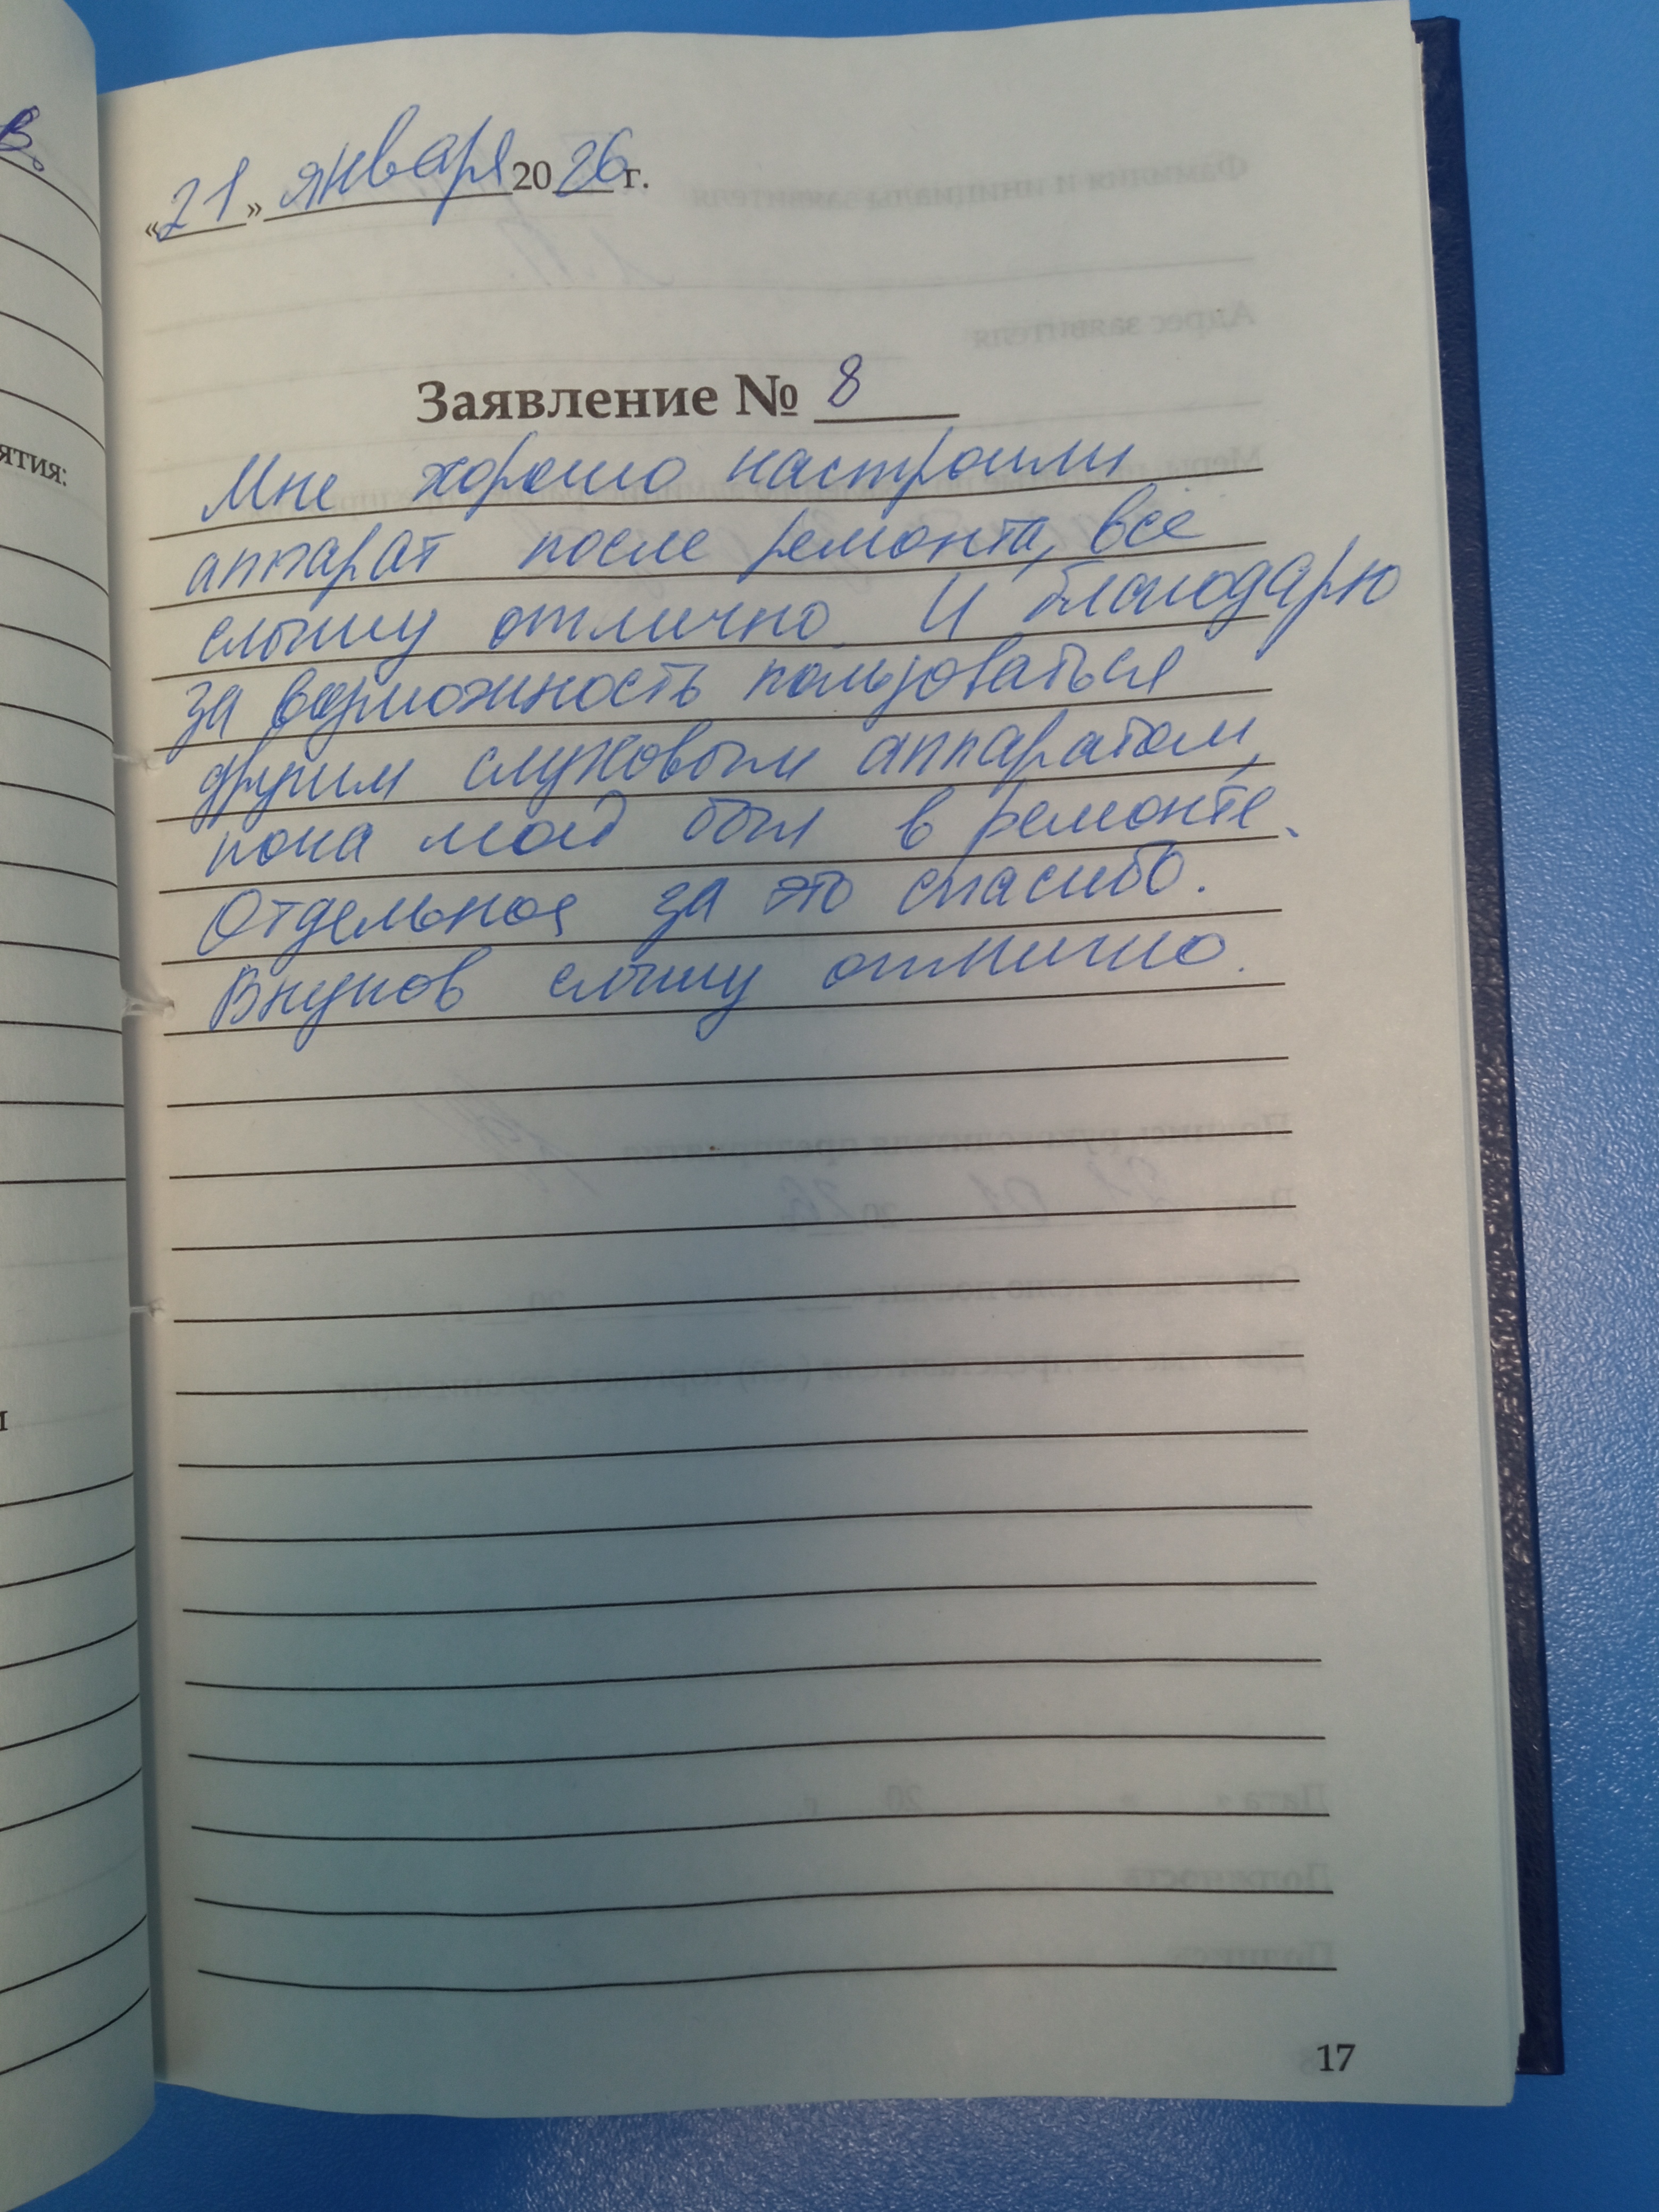 в.
ятия:
«21» января 2026 г.
Заявление № 8
Мне хорошо настроили
аппарат после ремонта, все
слышу отлично. И благодарю
за возможность пользоваться
другим слуховым аппаратом,
пока мой был в ремонте.
Отдельное за это спасибо.
Внуков слышу отлично.
17